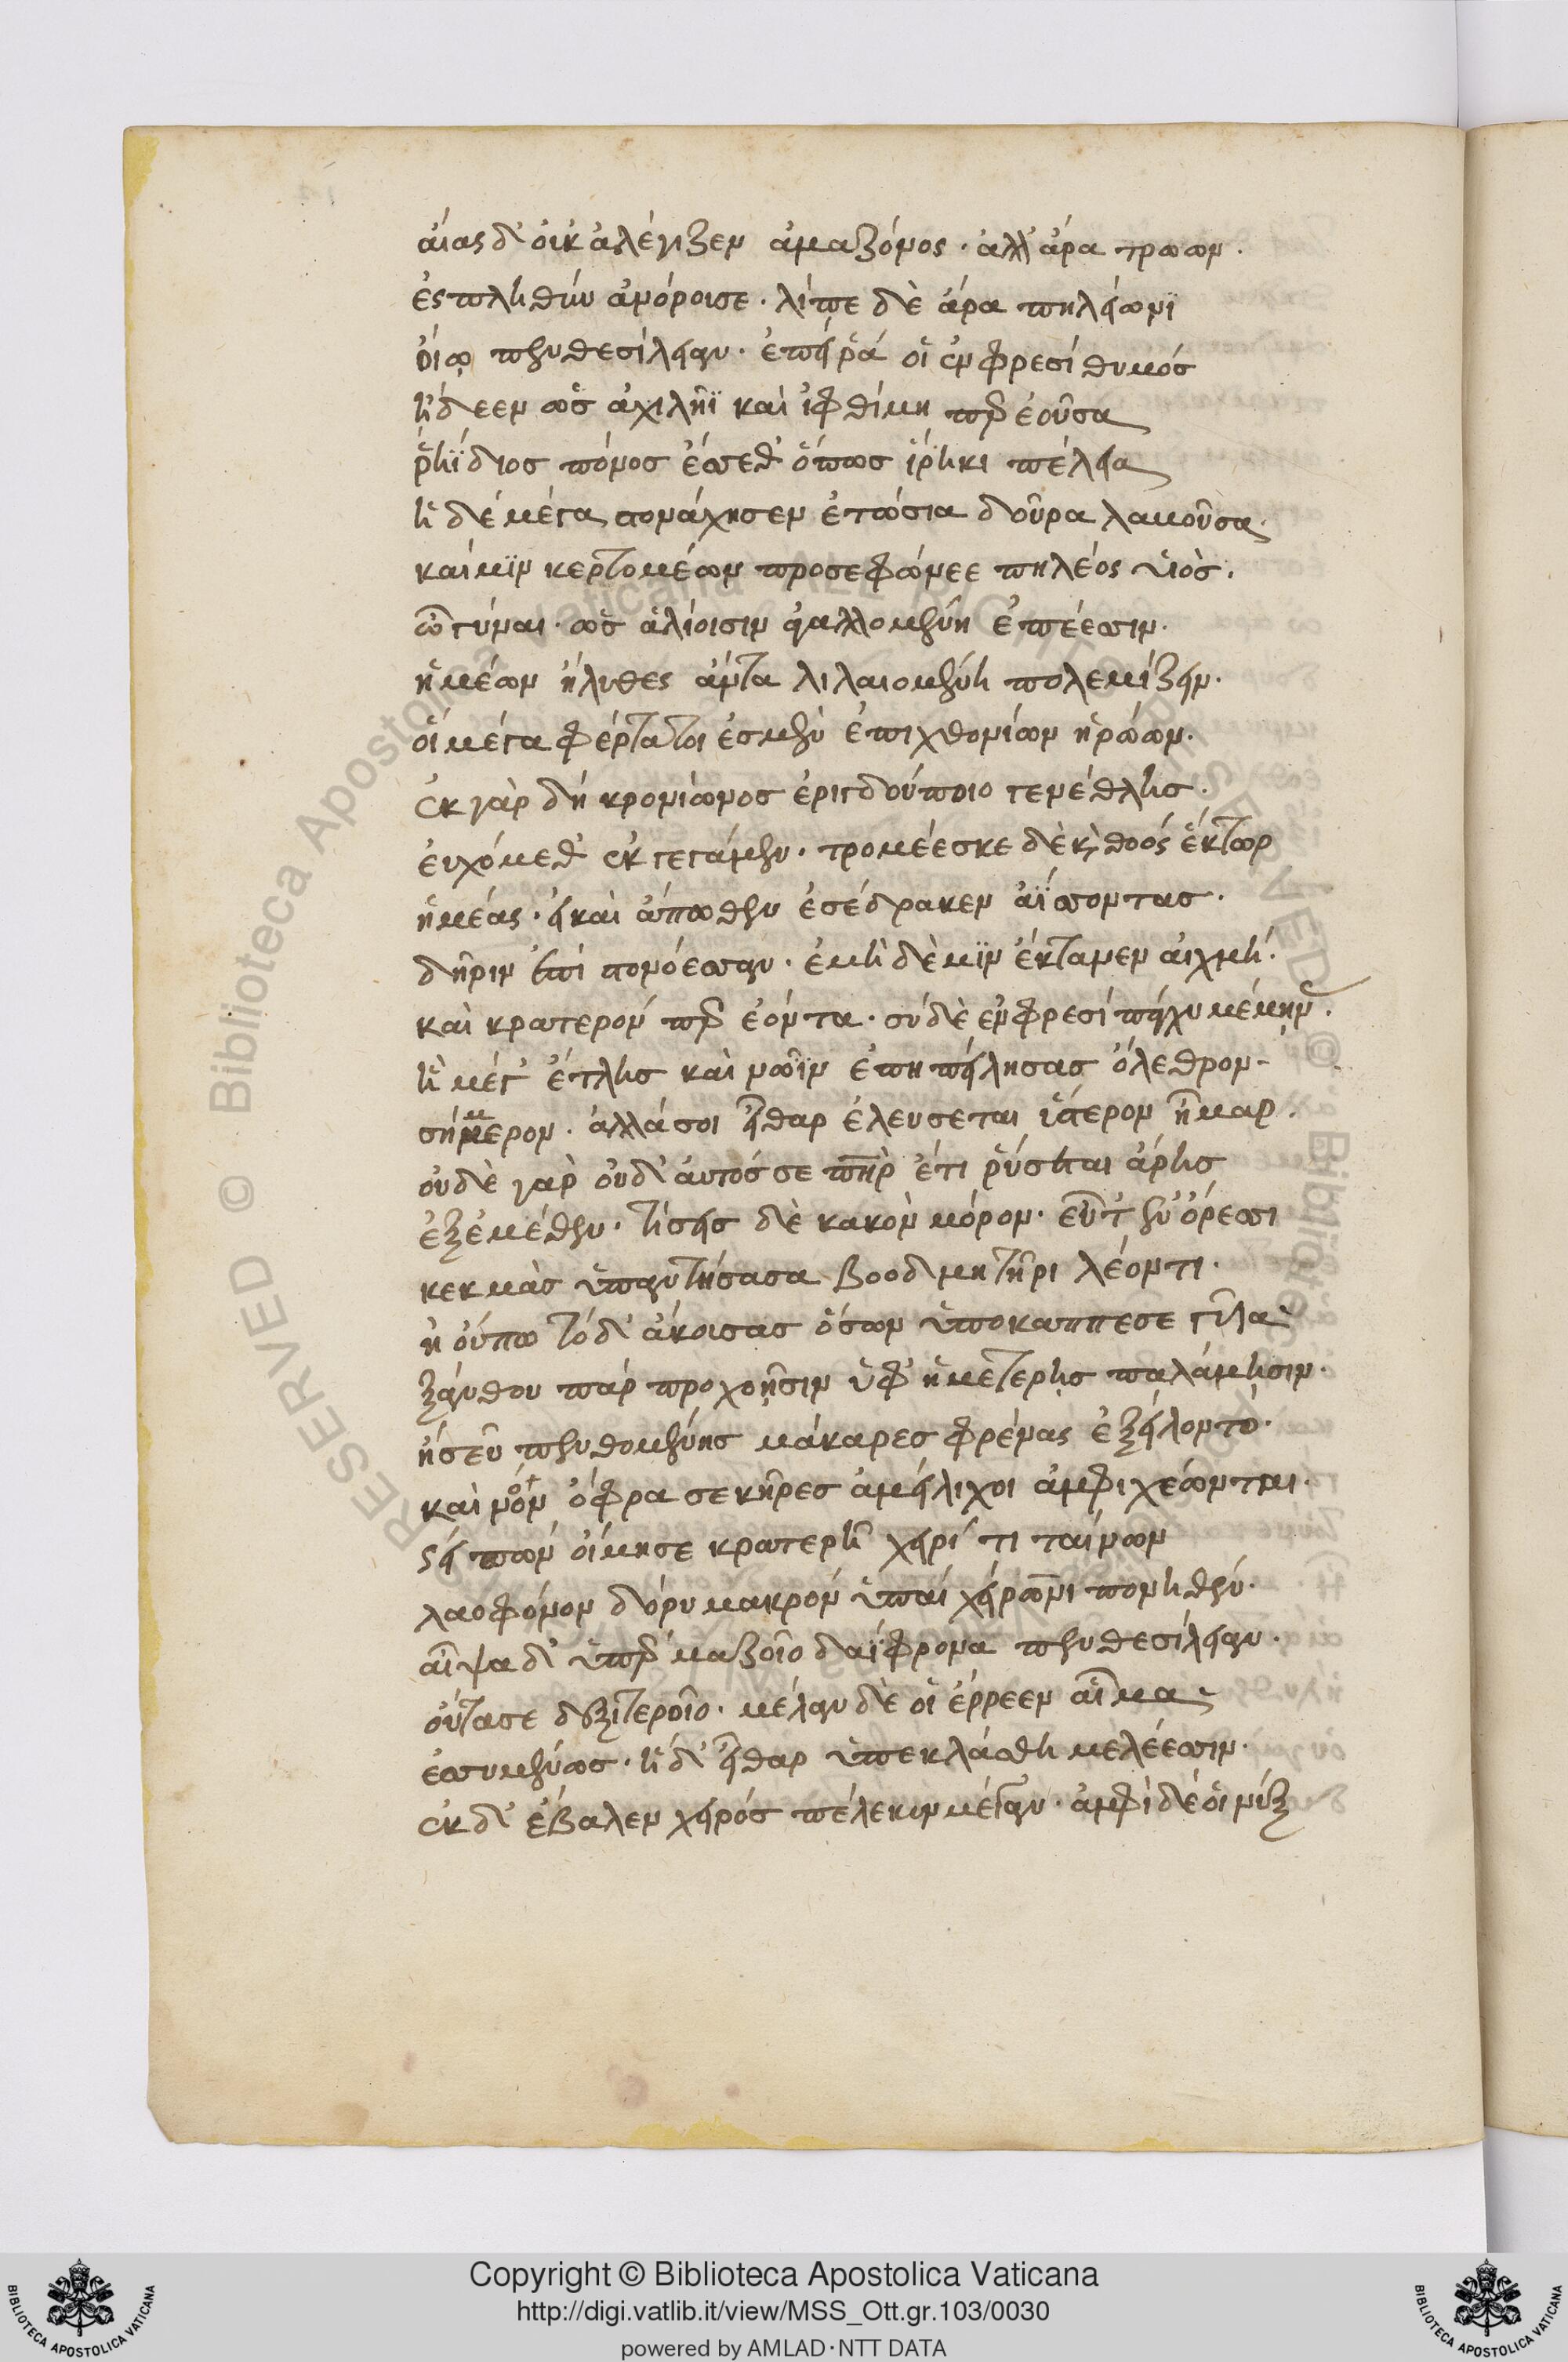 αἴας δ' οὐκ ἀλέγιζεν ἀμαζόνος· ἀλλ' ἄρα τρώων·
ἐς πληθὺν ἀνόρουσε· λίπε δὲ ἄρα πηλείωνϊ
οἴῳ πενθεσίλειαν· ἐπεί ῥά οἱ ἐν φρεσί θυμός
ἤδεεν ὡς ἀχιλῆϊ καὶ ἰφθίμη περ ἐοῦσα
ῥηΐδιος πόνος ἔσσεθ' ὅπως ἴρηκι πέλεια
ἡ δέ μέγα στονάχησεν ἐτώσια δοῦρα λαμοῦσα·
καί μϊν κερτομέων προσεφώνεε πηλέος υἱὸς·
ὦ γύναι· ὡς ἁλίοισιν ἀγαλλομένη ἐπέεσσιν·
ἡμέων ἤλυθες ἄντα λιλαιομένη πολεμίζειν·
οἵ μέγα φέρτατοι ἐσμὲν ἐπιχθονίων ἡρώων·
ἐκ γὰρ δή κρονίωνος ἐριγδούποιο γενέθλης·
εὐχόμεθ' ἐκγεγάμεν· τρομέεσκε δὲ καὶ θοός ἕκτωρ
ἡμέας· εἰ καὶ ἄπωθεν ἐσέδρακεν ἀΐσσοντας·
δῆριν ἐπί στονόεσσαν· ἐμὴ δὲ μϊν ἔκταμεν αἰχμή·
καὶ κρατερόν περ ἐόντα· σύ δὲ ἐν φρεσί πάγχυ μέμηνας·
ἣ μέγ' ἔτλης καὶ νῶϊν ἐπηπείλησας ὄλεθρον·
σήμερον· ἀλλά σοι εἶθαρ ἐλεύσεται ὕστερον ἦμαρ·
οὐδὲ γὰρ οὐδ' αὐτός σε πατὴρ ἔτι ῥύσεται ἄρης
ἐξ ἐμέθεν· τίσεις δὲ κακὸν μόρον· εὖτ' ἐν ὄρεσσι
κεκμὰς ὑπαντήσασα βοοδμητῆρι λέοντι·
ἢ οὔπω τόδ' ἄκουσας ὅσων ὑποκαππεσε γυῖα
ξάνθου παρ προχοῇσιν ὑφ' ἡμετέρης παλάμησιν·
ἤ σεῦ πευθομένης μάκαρες φρένας ἐξείλοντο·
καὶ νόον ὄφρα σε κῆρες ἀμείλιχοι ἀμφιχέωνται·
ϛεί πων οἴμησε κρατερῇ χειρί τιταίνων
λαοφόνον δόρυ μακρόν ὑπαί χείρωνι πονηθέν·
αἶψα δ' ὑπὲρ μαζοῖο δαΐφρονα πενθεσίλειαν·
οὔτασε δεξιτεροῖο· μέλαν δὲ οἱ ἔρρεεν αἷμα·
ἐσσυμένως· ἡ δ' εἶθαρ ὑπεκλάσθη μελέεσσιν·
ἐκ δ' ἔβαλεν χειρός πέλεκυν μέγαν· ἀμφὶ δέ οἱ νύξ
Copyright © Biblioteca Apostolica Vaticana
http://digi.vatlib.it/view/MSS_Ott.gr.103/0030
powered by AMLAD·NTT DATA